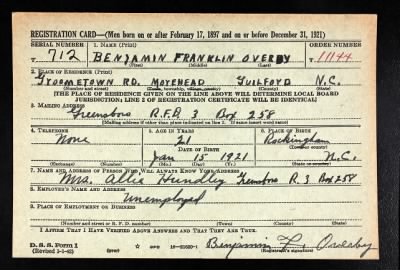 REGISTRATION CARD—(Men born on or after February 17, 1897 and on or before December 31, 1921)
SERIAL NUMBER 1. NAME (Print) ORDER NUMBER
T 712 BENJAMIN FRANKLIN OVERBY T 11144
(First) (Middle) (Last)
2. PLACE OF RESIDENCE (Print)
GROOMETOWN RD. MOREHEAD GUILFORD N.C.
(Number and street) (Town, township, village, or city) (County) (State)
[THE PLACE OF RESIDENCE GIVEN ON THE LINE ABOVE WILL DETERMINE LOCAL BOARD
JURISDICTION; LINE 2 OF REGISTRATION CERTIFICATE WILL BE IDENTICAL]
3. MAILING ADDRESS
Greensboro R.F.D. 3 Box 258
[Mailing address if other than place indicated on line 2. If same insert word same]
4. TELEPHONE 5. AGE IN YEARS 6. PLACE OF BIRTH
None 21 Rockingham
DATE OF BIRTH (Town or county)
Jan 15 1921 N.C.
(Exchange) (Number) (Mo.) (Day) (Yr.) (State or country)
7. NAME AND ADDRESS OF PERSON WHO WILL ALWAYS KNOW YOUR ADDRESS
Mrs. Allie Hundley Greensboro R. 3 Box 258
8. EMPLOYER'S NAME AND ADDRESS
Unemployed
9. PLACE OF EMPLOYMENT OR BUSINESS
(Number and street or R. F. D. number) (Town) (County) (State)
I AFFIRM THAT I HAVE VERIFIED ABOVE ANSWERS AND THAT THEY ARE TRUE.
D. S. S. Form 1
(Revised 1-1-42) (over) 16—21630-1 Benjamin F. Overby
(Registrant's signature)